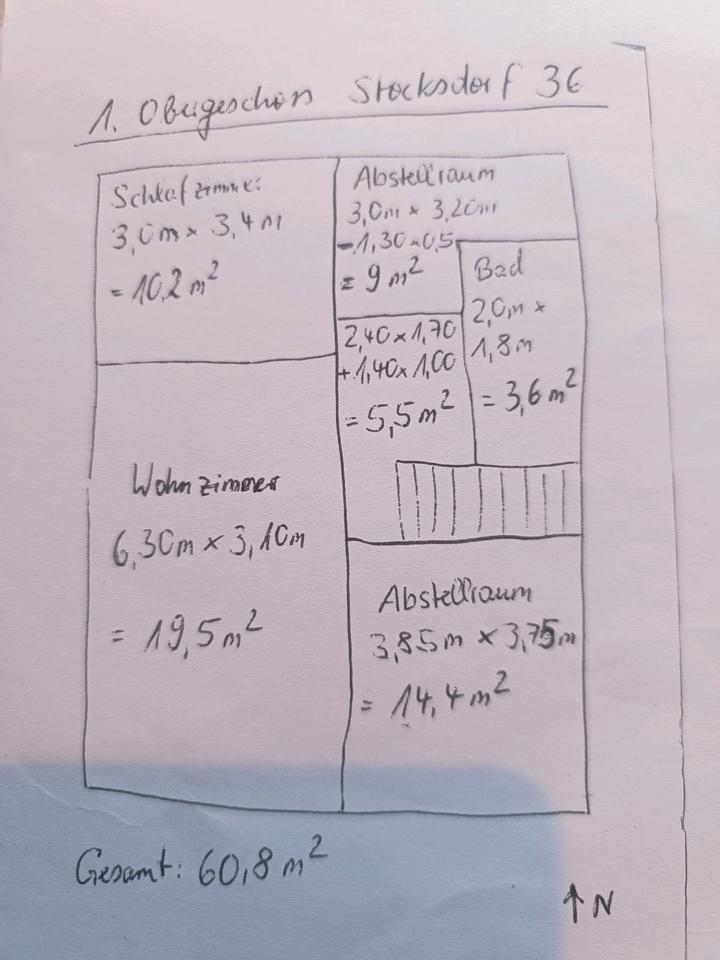 1. Obergeschoss Stocksdorf 36
Schlafzimmer
3,0m × 3,4m
= 10,2 m²
Abstellraum
3,0m × 3,20m
-1,30×0,5
= 9 m²
Bad
2,0m ×
1,8m
= 3,6 m²
2,40×1,70
+1,40×1,00
= 5,5 m²
Wohnzimmer
6,30m × 3,10m
= 19,5 m²
Abstellraum
3,85m × 3,75m
= 14,4 m²
Gesamt: 60,8 m²
↑ N